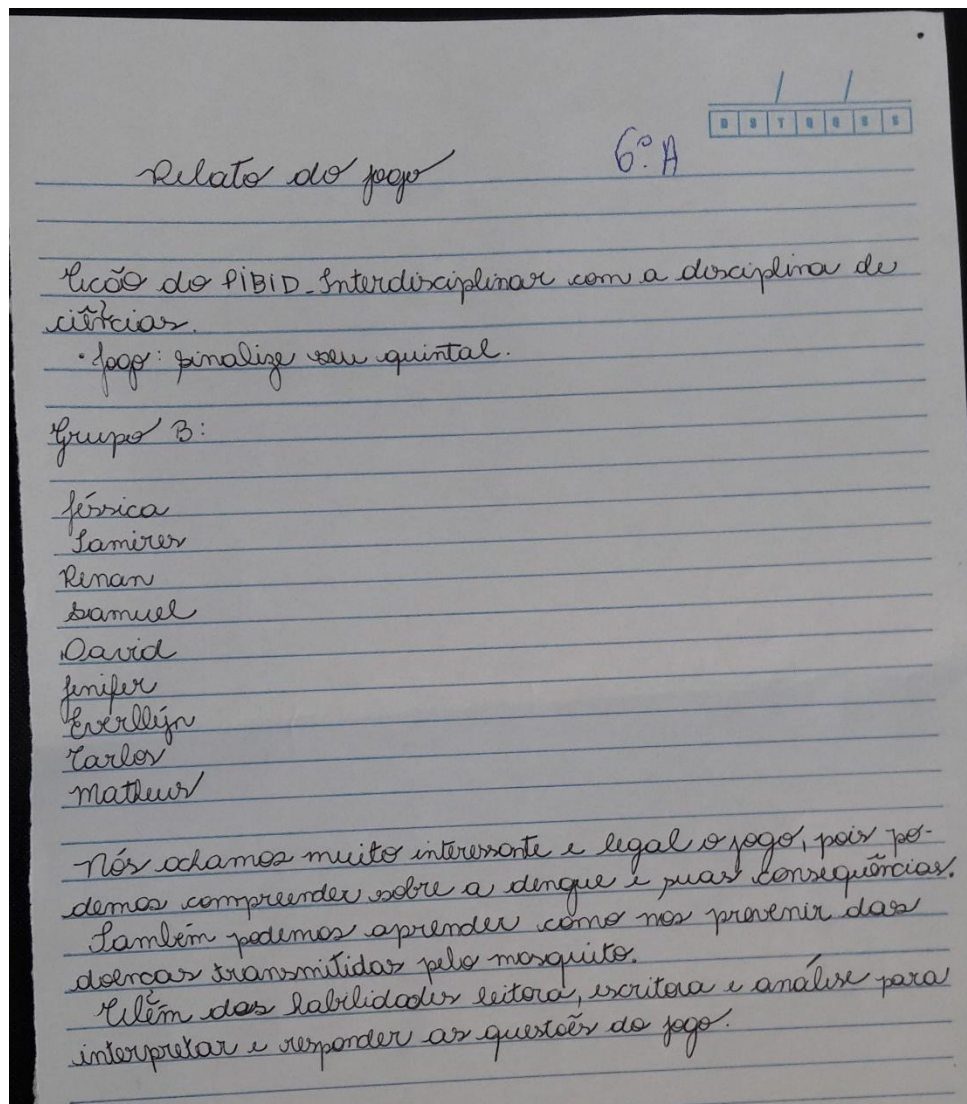 D S T Q Q S S
Relato do jogo 6º A
Acão do PIBID - Interdisciplinar com a disciplina de
ciências.
• Jogo: sinalize seu quintal.
Grupo B:
Jéssica
Tamires
Renan
Samuel
David
Jenifer
Everllyn
Carlos
Matheus
Nós achamos muito interessante e legal o jogo, pois po-
demos compreender sobre a dengue e suas consequências.
Também podemos aprender como nos prevenir das
doencas transmitidas pelo mosquito.
Além das habilidades leitora, escritora e análise para
interpretar e responder as questões do jogo.